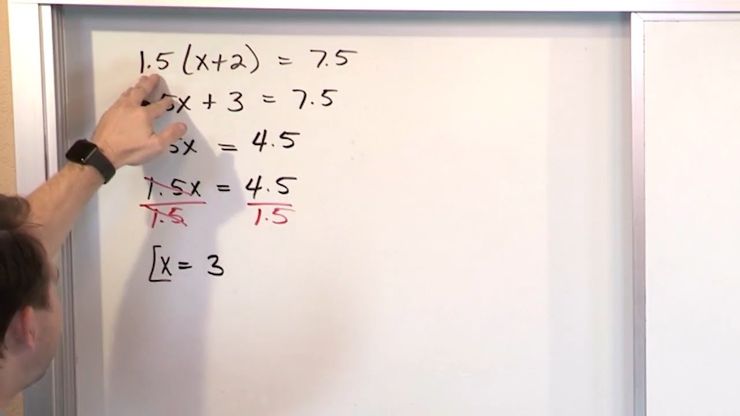 1.5(x+2) = 7.5
5x + 3 = 7.5
5x = 4.5
1.5x = 4.5
1.5 1.5
x = 3